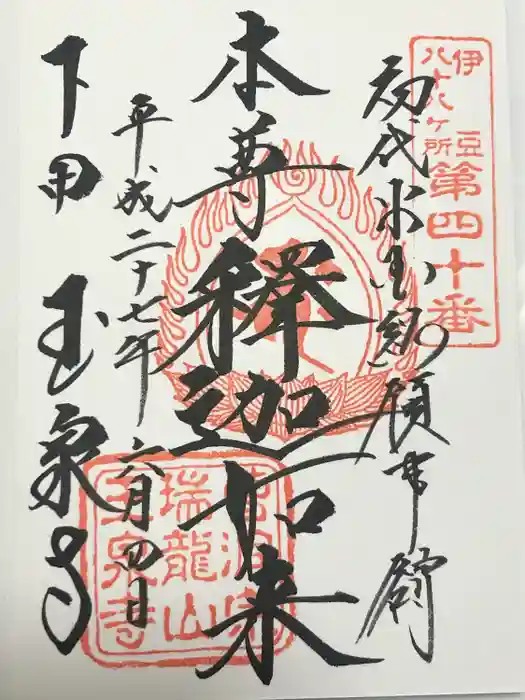 伊豆
八十八ヶ所
第四十番
初代米国総領事館
本尊釋迦如来
平成二十七年六月四日
下田 玉泉寺
瑞龍山
玉泉寺